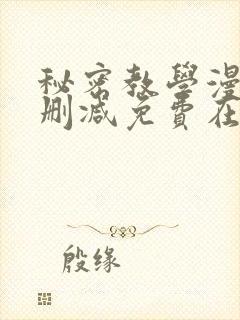 秘密教學漫
刪減免費在
殷缘